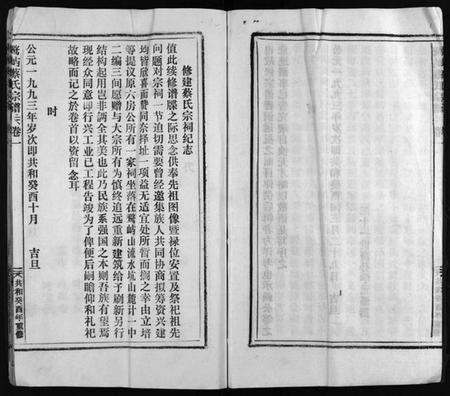 修建蔡氏宗祠纪志
值此续修谱牒之际思念供奉先祖图像暨禄位安置及祭祀祖先
问题对宗祠一节迫切需要曾经邀集族人共同协商拟筹资兴建
均皆欣喜面赞同奈择址一项益无适宜处所暂而搁之幸由立培
等提议原六房公所有一家祠坐落在鹭屿山流水坑山麓计一中
二编三间愿赠与大宗所有为慎终追远重新建筑给予刷新另行
结构起用岂非諵全其美也此乃民族系强国之本则吾族有望焉
现经众同意即行兴工业已工程告竣为了俾便后嗣瞻仰和礼祀
故略而记之於卷首以资留念耳
时
公元一九九三年岁次即共和癸酉十月 吉旦
鹭屿蔡氏宗谱 卷一
共和癸酉年重修